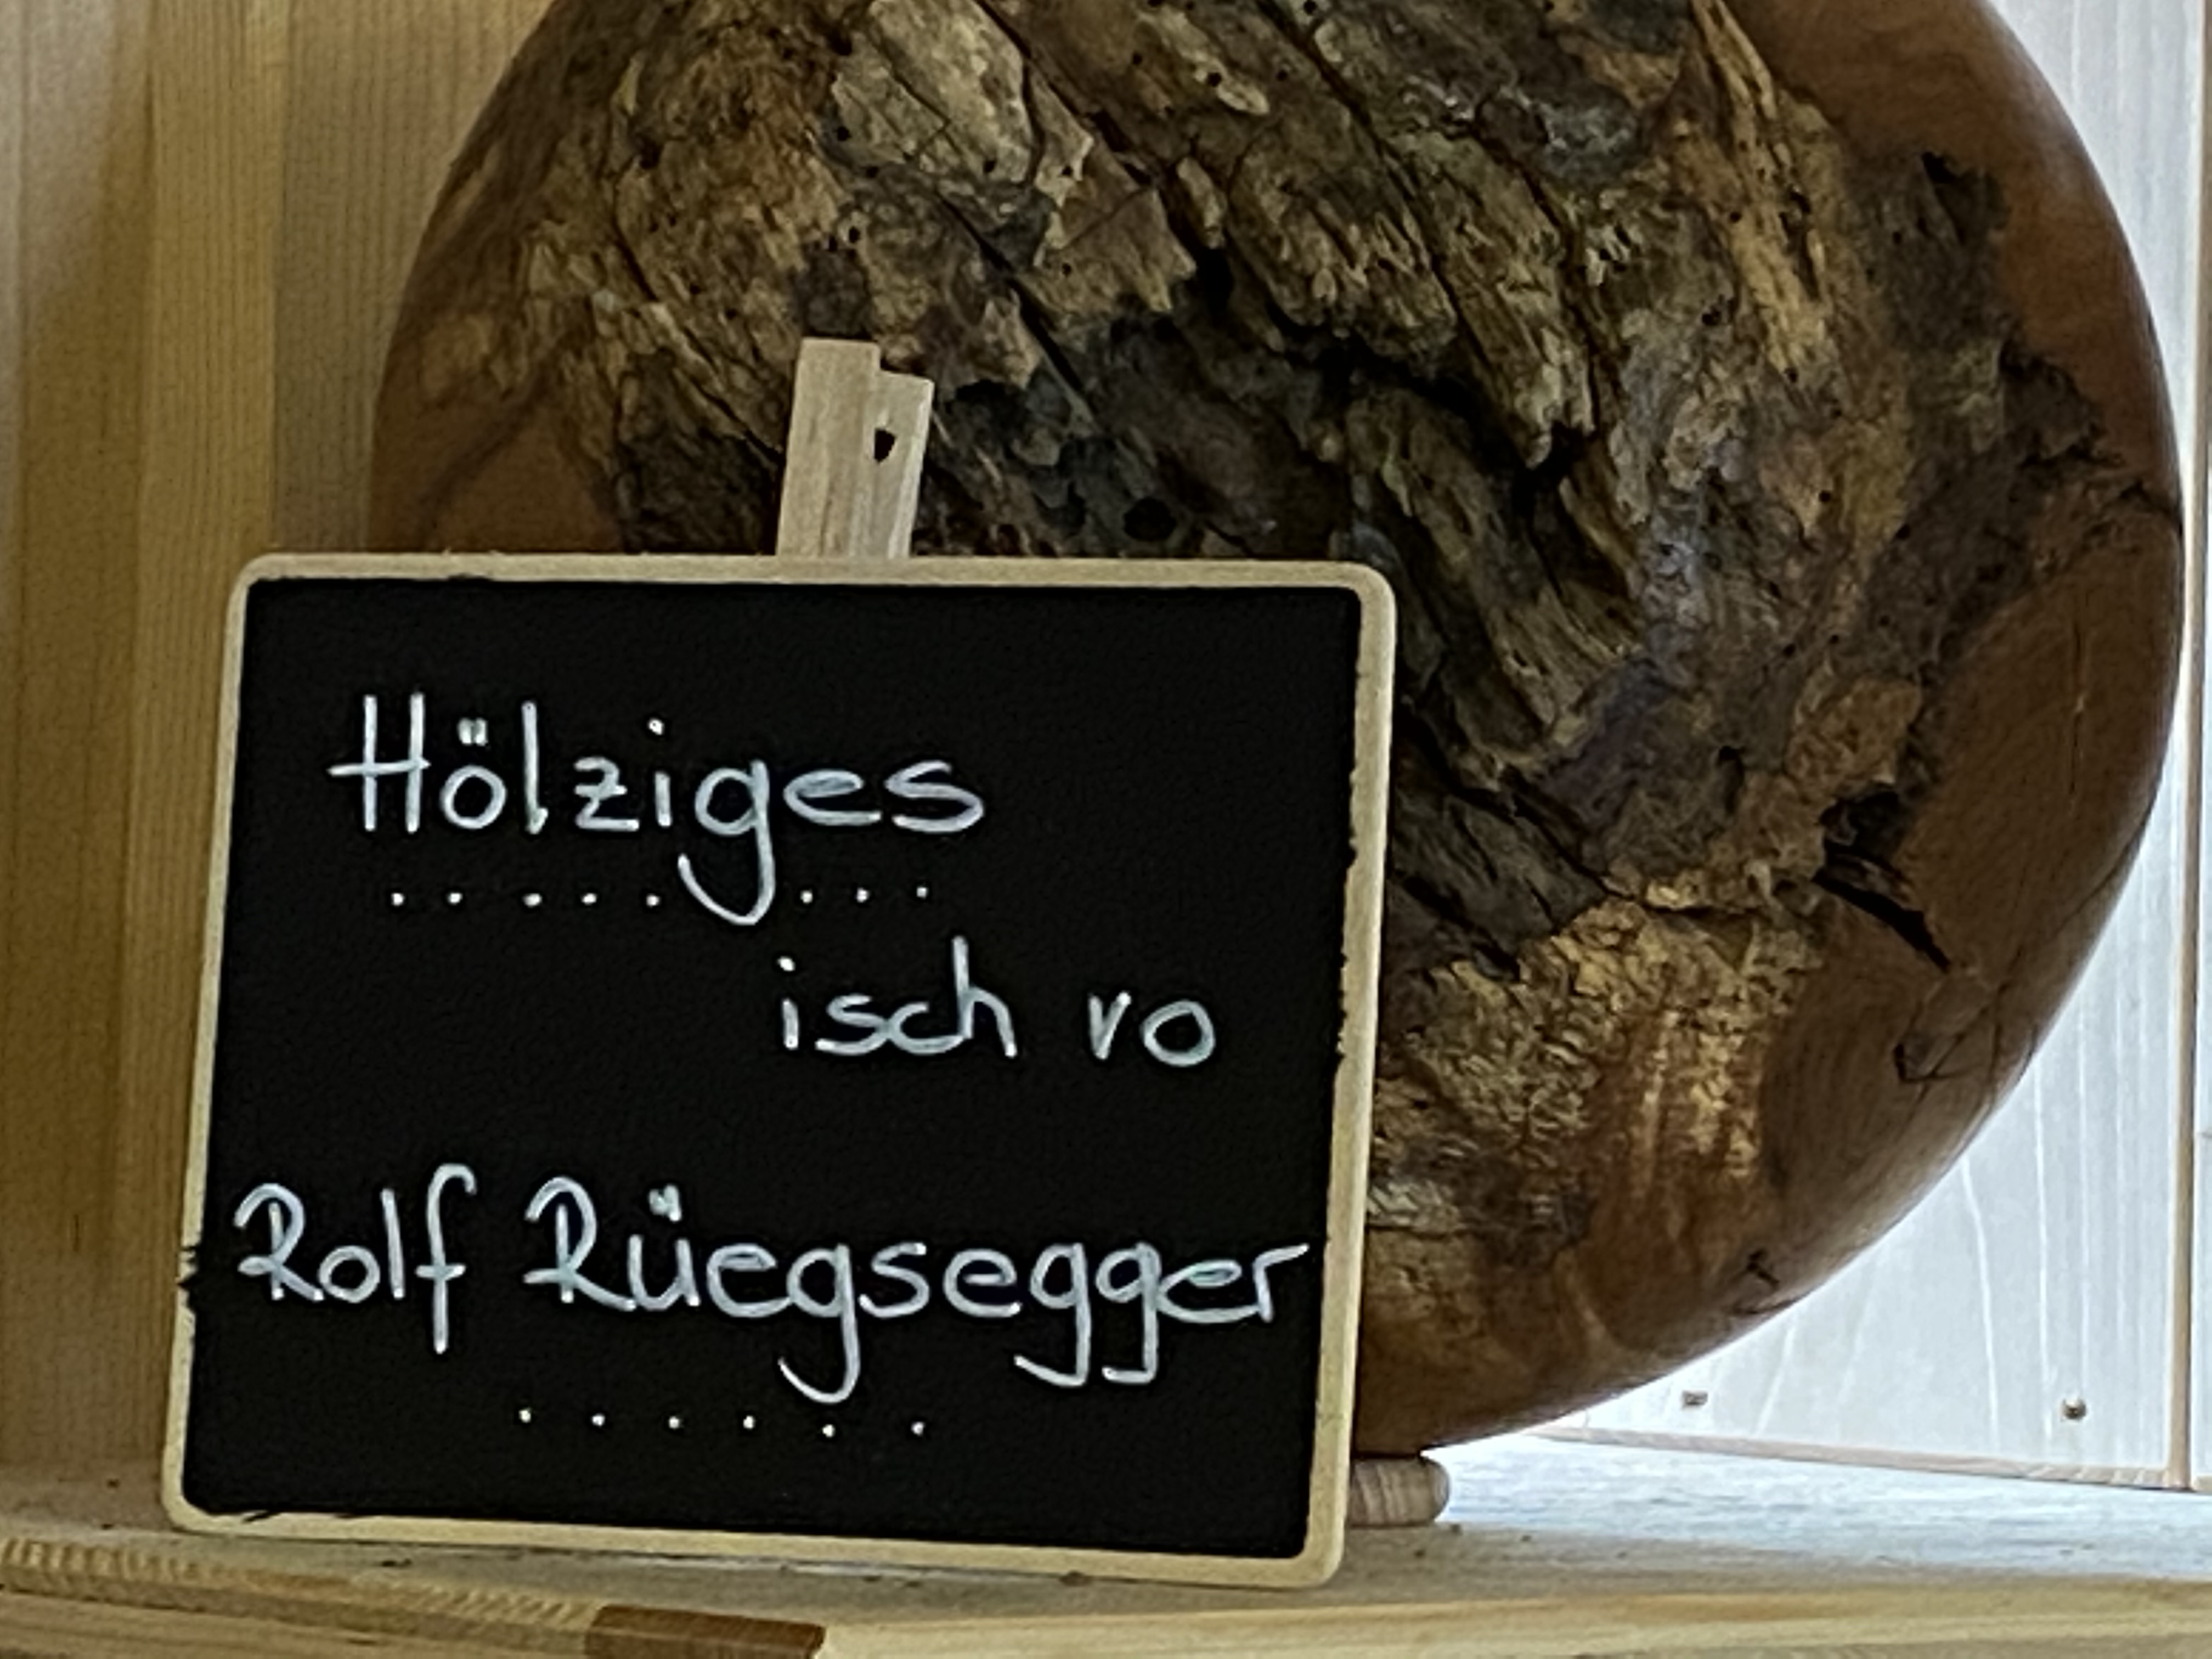 Hölziges
isch vo
Rolf Rüegsegger